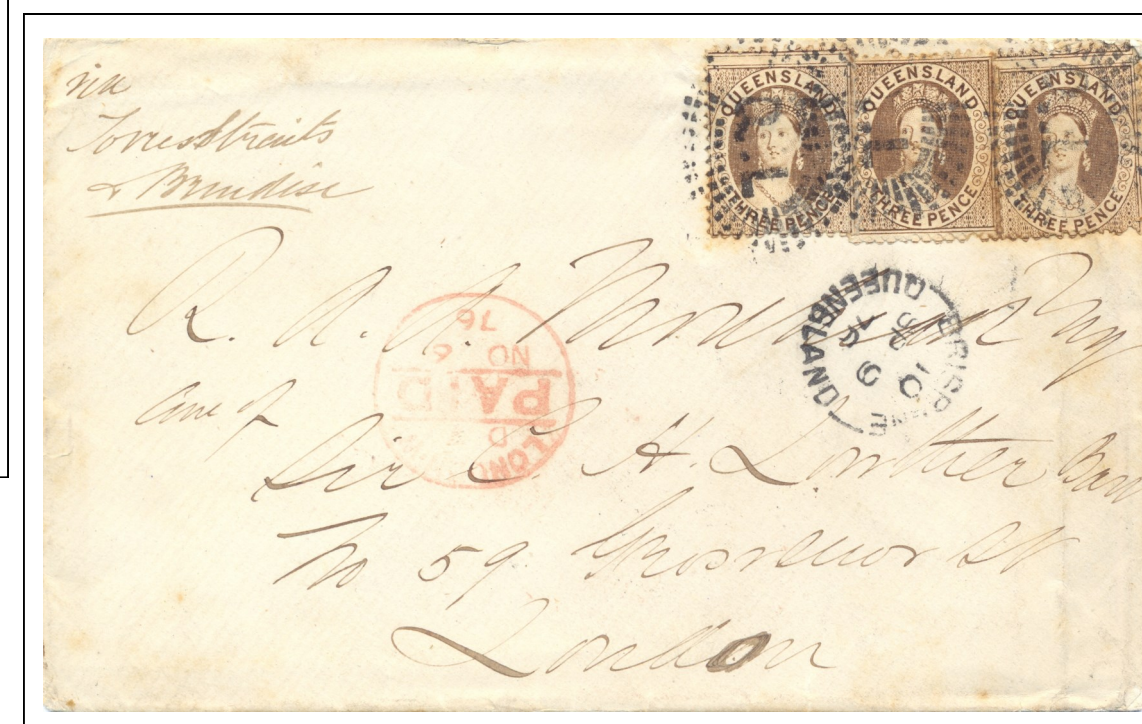 via
Torres Straits
& Brindisi
QUEENSLAND
THREE PENCE
QUEENSLAND
THREE PENCE
QUEENSLAND
THREE PENCE
R. A.
BRISBANE
QUEENSLAND
LONDON
PAID
NO 6
76
Care of
Sir C. H. Lowther Bar
No 59 Grosvenor St
London